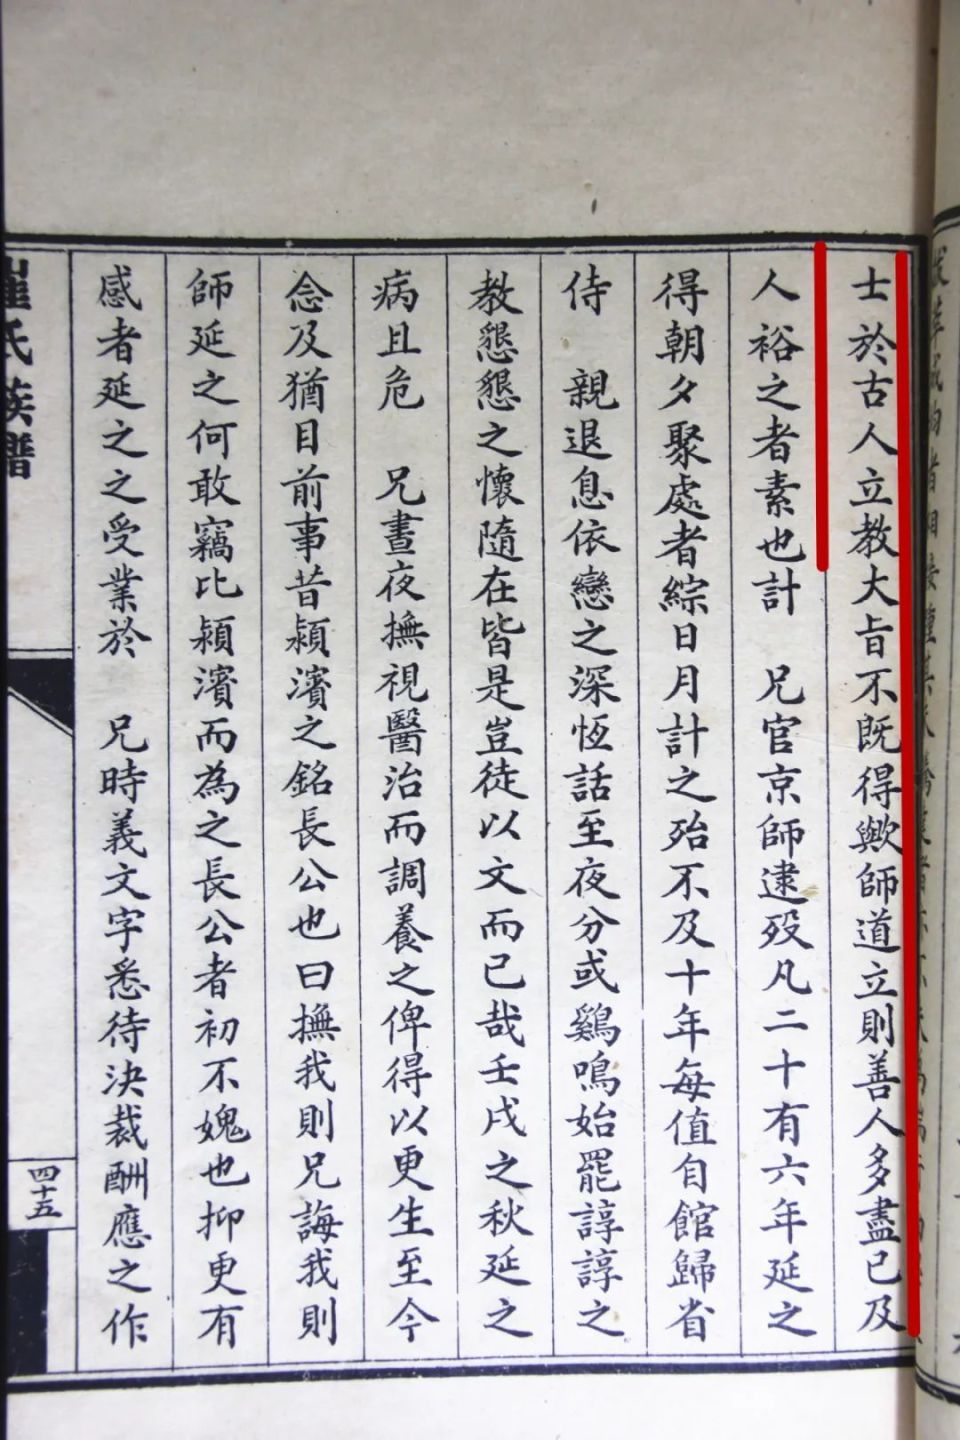 士於古人立教大旨不既得歟師道立則善人多盡已及
人裕之者素也計　兄官京師逮歿凡二十有六年延之
得朝夕聚處者綜日月計之殆不及十年每值自館歸省
侍　親退息依戀之深恆話至夜分或鷄鳴始罷諄諄之
教懇懇之懷隨在皆是豈徒以文而已哉壬戌之秋延之
病且危　兄晝夜撫視醫治而調養之俾得以更生至今
念及猶目前事昔潁濱之銘長公也曰撫我則兄誨我則
師延之何敢竊比潁濱而為之長公者初不媿也抑更有
感者延之之受業於　兄時義文字悉待決裁酬應之作
崔氏族譜
四十五